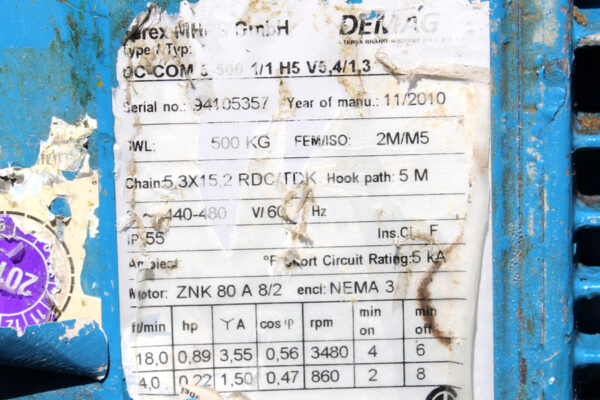 GmbH DEMAG
Type / Typ:
DC-COM 5-500 1/1 H5 V5,4/1,3
Serial no.: 94105357 Year of manu.: 11/2010
SWL: 500 KG FEM/ISO: 2M/M5
Chain: 5,3X15,2 RDC/TDK Hook path: 5 M
440-480 V/ 60 Hz
IP 55 Ins.Cl. F
Ambient °F Short Circuit Rating: 5 kA
Motor: ZNK 80 A 8/2 encl: NEMA 3
ft/min hp Y A cos φ rpm min on min off
18,0 0,89 3,55 0,56 3480 4 6
4,0 0,22 1,50 0,47 860 2 8